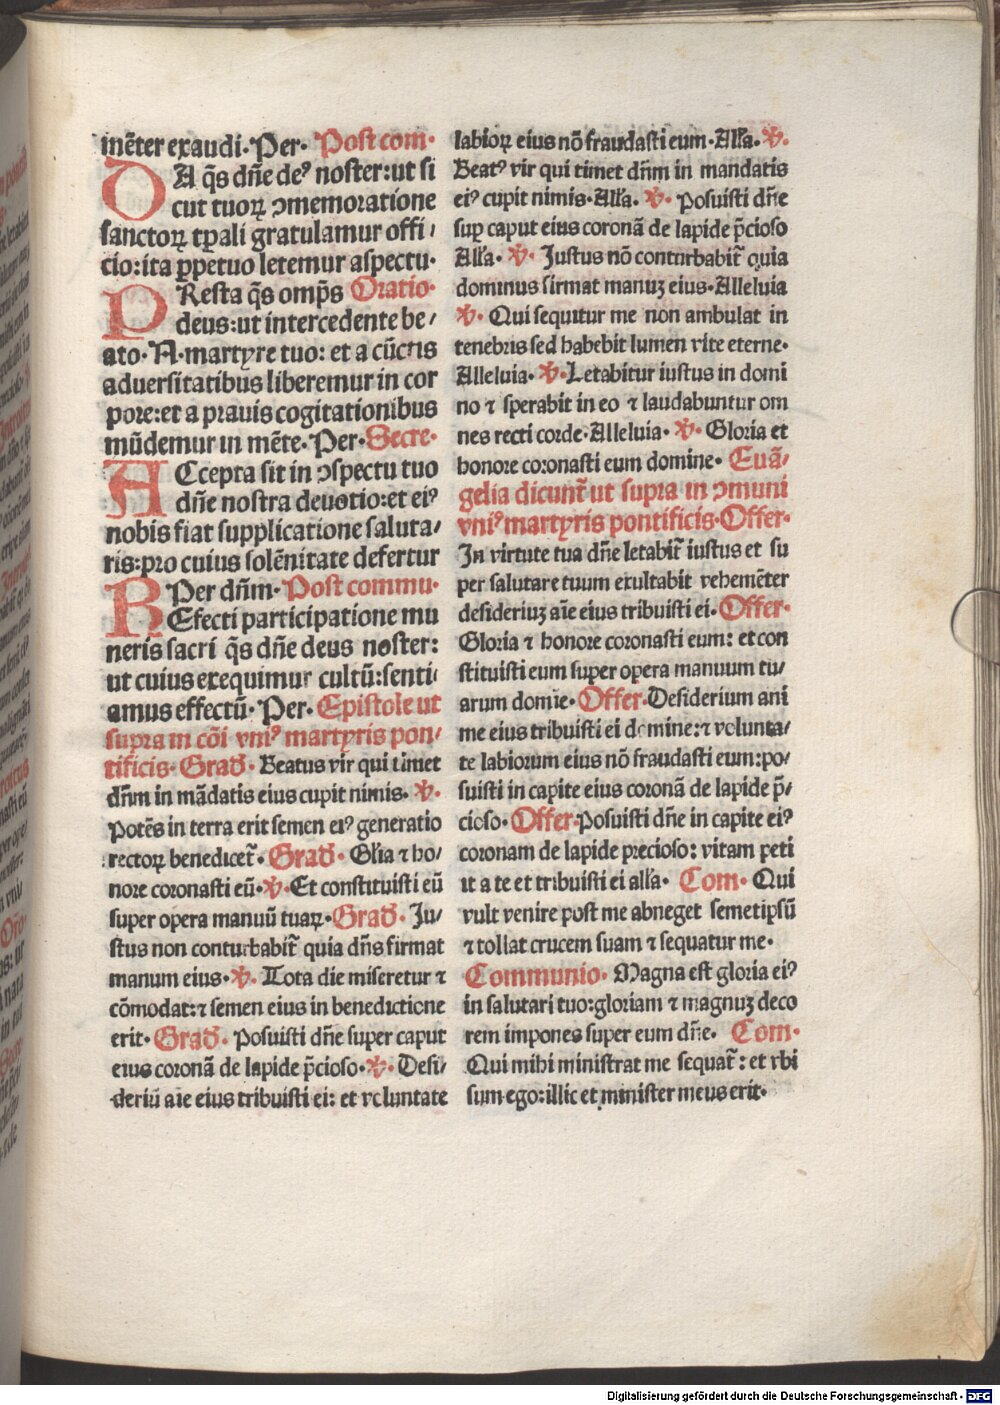 mēter exaudi· Per· Post com·
DA q̄s dn̄e deꝰ noster: ut si
cut tuoꝝ ꝯmemoratione
sanctoꝝ tꝑali gratulamur offi/
cio: ita ꝑpetuo letemur aspectu·
PResta q̄s omp̄s Oratio·
deus: ut intercedente be/
ato· N· martyre tuo: et a cūctis
adversitatibus liberemur in cor
pore: et a pravis cogitationibus
mūdemur in mēte· Per· Secre·
ACcepta sit in ꝯspectu tuo
dn̄e nostra devotio: et eiꝰ
nobis fiat supplicatione saluta/
ris: pro cuius solēnitate defertur
Per dn̄m· Post commu·
REfecti participatione mu
neris sacri q̄s dn̄e deus noster:
ut cuius exequimur cultū: senti/
amus effectū· Per· Epistole ut
supra in cōi vniꝰ martyris pon/
tificis· Grad̄· Beatus vir qui timet
dn̄m in mādatis eius cupit nimis· ℣·
Potēs in terra erit semen eiꝰ generatio
rectoꝝ benedicet̄· Grad̄· Glīa ⁊ ho/
nore coronasti eū· ℣· Et constituisti eū
super opera manuū tuaꝝ· Grad̄· Ju/
stus non conturbabit̄ quia dn̄s firmat
manum eius· ℣· Tota die miseretur ⁊
cōmodat: ⁊ semen eius in benedictione
erit· Grad̄· Posuisti dn̄e super caput
eius coronā de lapide p̄cioso· ℣· Desi/
deriū aīe eius tribuisti ei: et voluntate
labioꝝ eius nō fraudasti eum· Alla· ℣·
Beatꝰ vir qui timet dn̄m in mandatis
eiꝰ cupit nimis· Alla· ℣· Posuisti dn̄e
suꝑ caput eius coronā de lapide p̄cioso
Alla· ℣· Justus nō conturbabit̄ quia
dominus firmat manuꝫ eius· Alleluia
℣· Qui sequitur me non ambulat in
tenebris sed habebit lumen vite eterne·
Alleluia· ℣· Letabitur iustus in domi
no ⁊ sperabit in eo ⁊ laudabuntur om
nes recti corde· Alleluia· ℣· Gloria et
honore coronasti eum domine· Euā/
gelia dicunt̄ ut supra in ꝯmuni
vniꝰ martyris pontificis· Offer·
In virtute tua dn̄e letabit̄ iustus et su
per salutare tuum exultabit vehemēter
desideriuꝫ aīe eius tribuisti ei· Offer·
Gloria ⁊ honore coronasti eum: et con
stituisti eum super opera manuum tu/
arum domīe· Offer· Desiderium ani
me eius tribuisti ei domine: ⁊ volunta/
te labiorum eius nō fraudasti eum: po/
suisti in capite eius coronā de lapide p̄/
cioso· Offer· Posuisti dn̄e in capite eiꝰ
coronam de lapide precioso: vitam peti
it a te et tribuisti ei alla· Com· Qui
vult venire post me abneget semetipsū
⁊ tollat crucem suam ⁊ sequatur me·
Communio· Magna est gloria eiꝰ
in salutari tuo: gloriam ⁊ magnuꝫ deco
rem impones super eum dn̄e· Com·
Qui mihi ministrat me sequat̄: et vbi
sum ego: illic et minister meus erit·
Digitalisierung gefördert durch die Deutsche Forschungsgemeinschaft · DFG